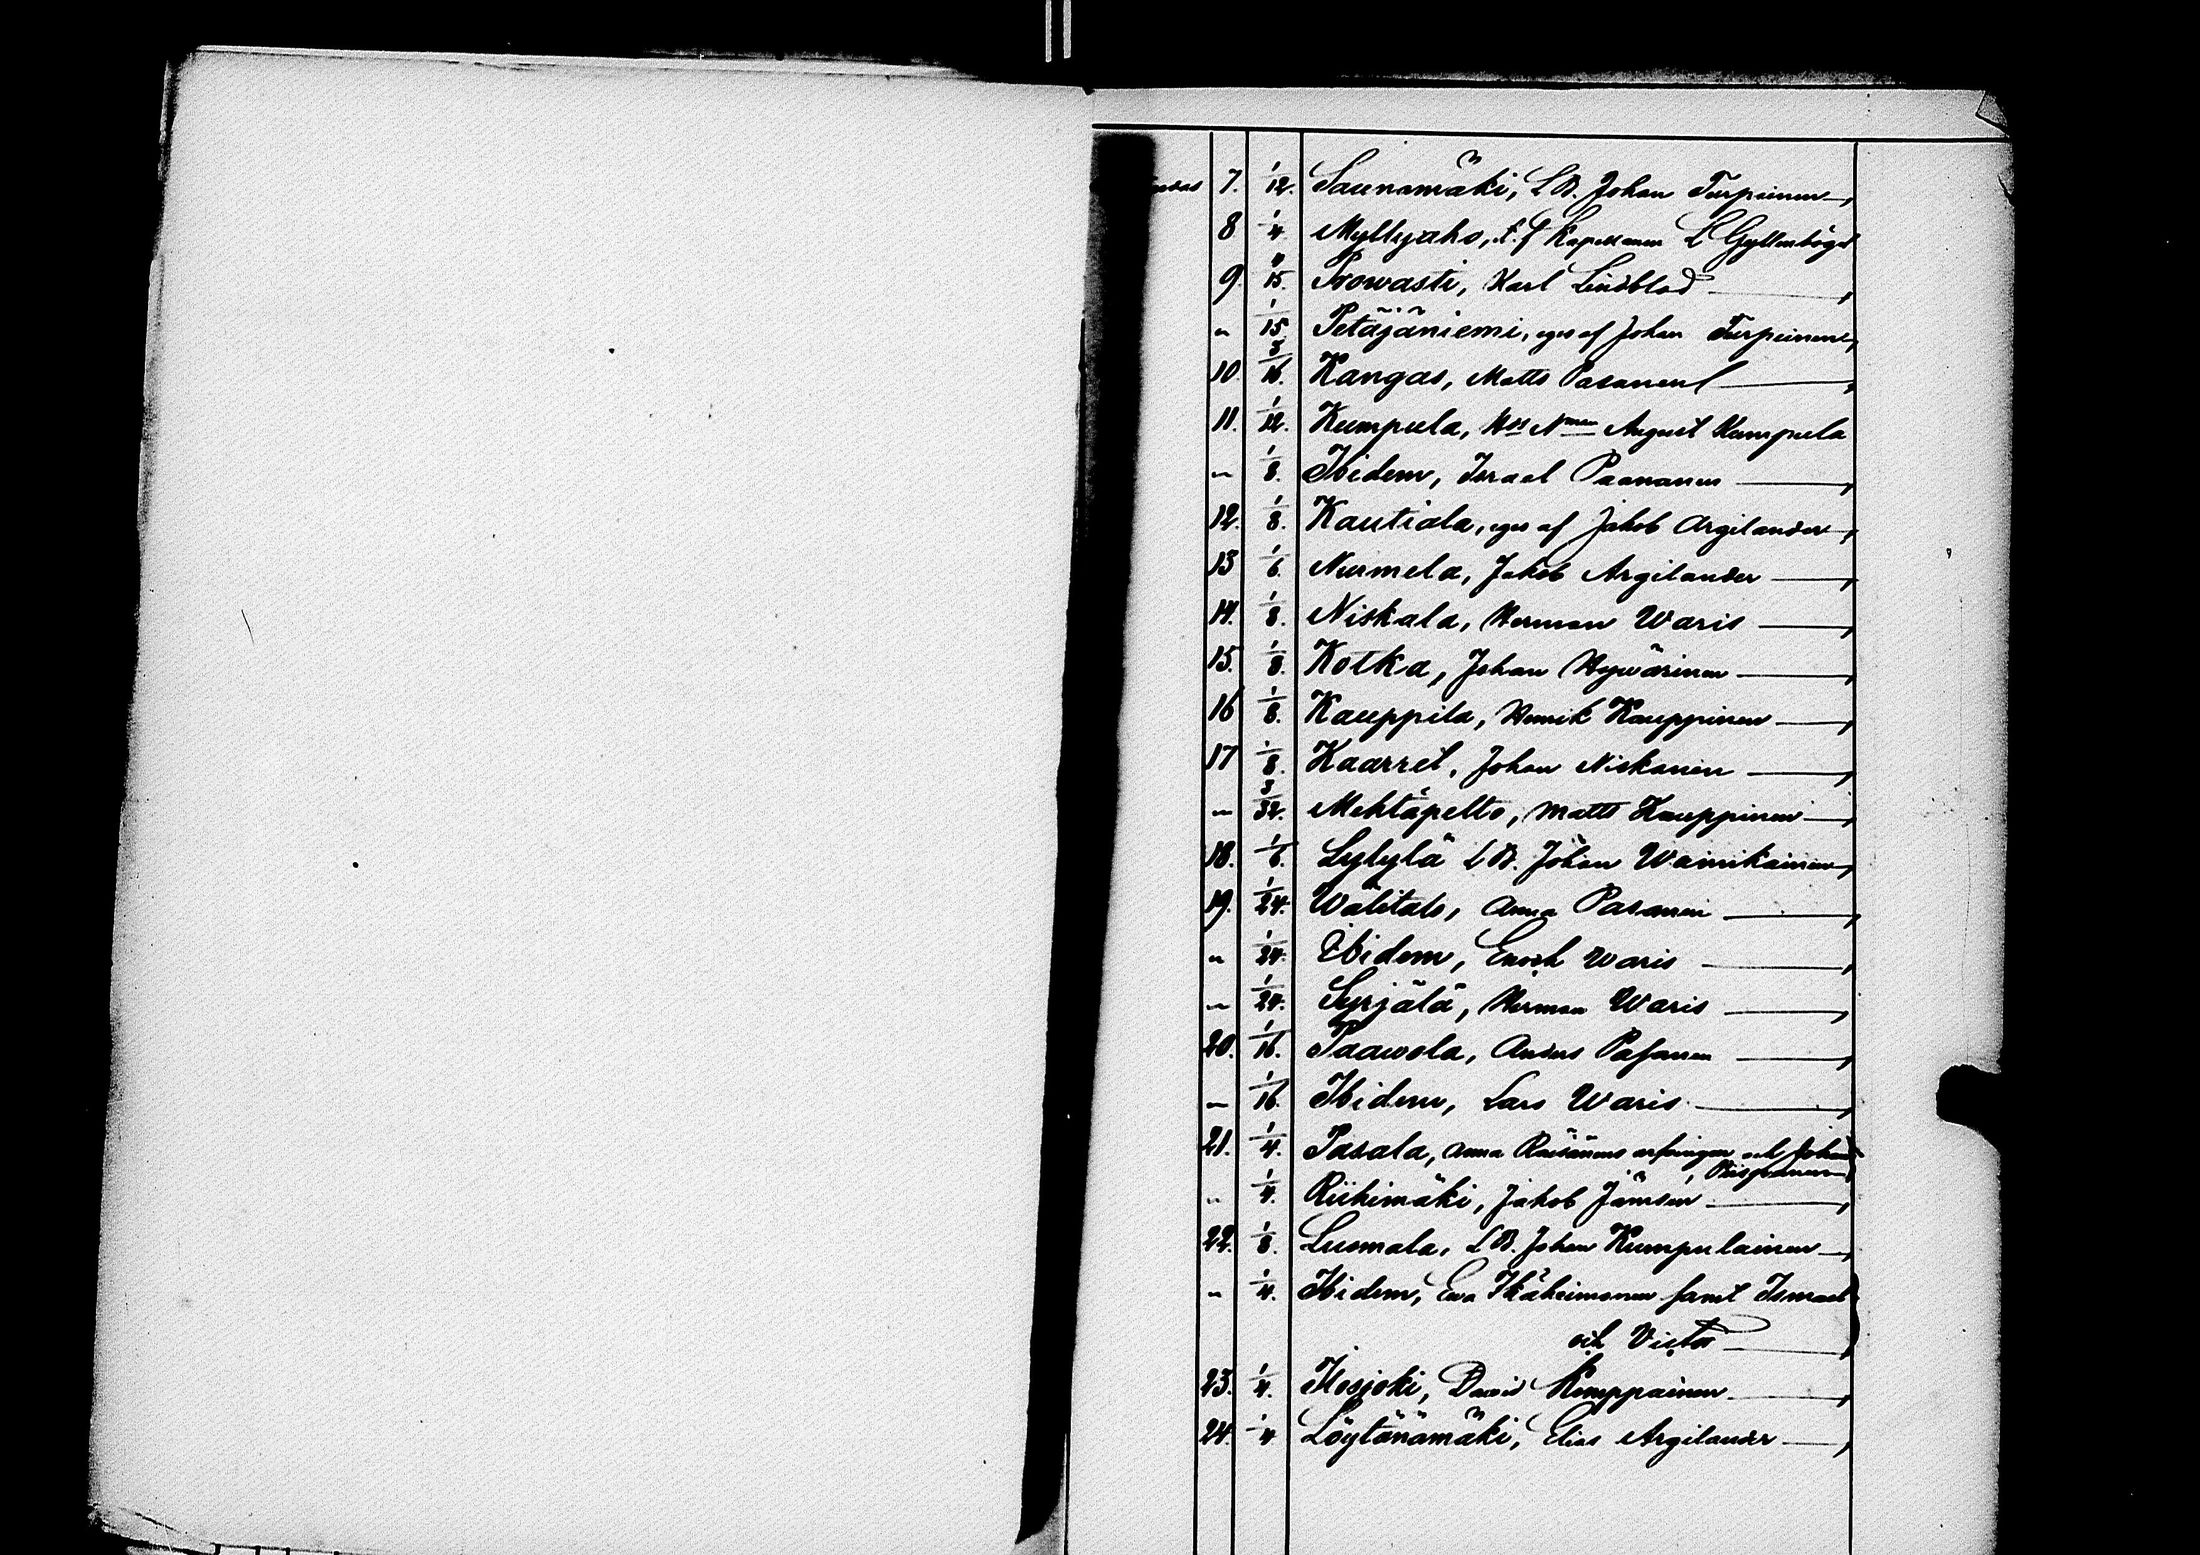 7. 1/12. Saunamäki, L B. Johan Turpeinen
8 1/4 Myllyaho, f. f Kapellanen L Gyllenbögel
9. 4/15. Prowasti, Karl Lindblad
" 1/15 Petäjäniemi, eges af Johan Turpeinen,
10. 3/16. Kangas, Matts Pasanen
11. 1/12. Kumpula, August Kumpula
" 1/8. Ibidem, Israel Paananen
12. 1/8. Kautiala, eges af Jakob Argilander
13 1/6. Nurmela, Jakob Argilander
14. 1/8. Niskala, Herman Waris
15. 1/8. Kotka, Johan Hywärinen
16 1/8. Kauppila, Henrik Kauppinen
17 1/8. Kaarret, Johan Niskanen
" 3/32. Mehtäpelto, Matts Kauppinen
18. 1/6. Lylylä L B. Johan Wainikainen,
19. 1/24. Wälitalo, Anna Pasanen
" 1/24. Ibidem, Enock Waris
" 1/24. Syrjälä, Herman Waris
20. 1/16. Paawola, Anders Pasanen
" 1/16. Ibidem, Lars Waris
21. 1/4. Pasala, Anna Räisänens arfvingar och Johan
Piispanen
" 1/4. Riihimäki, Jakob Jämsén
22. 1/8. Lusmala, L B. Johan Kumpulainen
" 1/4. Ibidem, Eva Ikäheimonen samt Ismael
och Victor
23. 1/4. Ilosjoki, David Kemppainen
24. 1/4 Löytänämäki, Elias Argilander